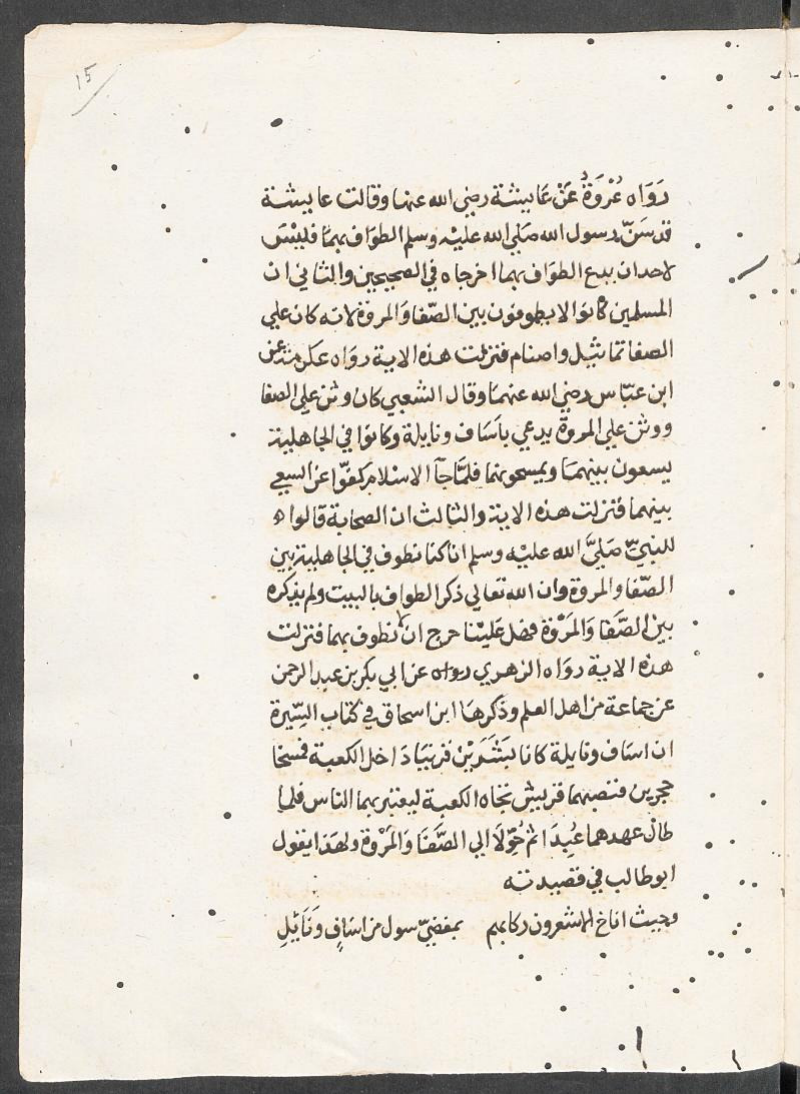 15
رَوَاه عُرْوَةُ عَنْ عَايشة رضي الله عنها وقالت عايشة
قد سَنّ رسول الله صَلي الله عليْه وسلم الطوَاف بهمَا فليْسَ
لاحد ان يدع الطوَاف بهما اخرجاه في الصحيحين والثاني ان
المسلمين كانوا لا يطوفون بين الصّفا وَالمروَة لانه كان علي
الصفا تماثيل واصنام فنزلت هذه الاية روَاه عكرمة عن
ابن عبّاس رضي الله عنهمَا وقال الشعبي كان وثن علي الصفا
ووثن علي المروة يدعي باَسَاف ونايلة وكانوا في الجاهلية
يسعون بينهمَا ويمسحونهما فلمّا جآ الاسْلام كفوّا عن السعي
بينهما فنزلت هذه الاية والثالث ان الصحابة قالوا
للنبيّ صَليَّ الله عليْه وسلم انا كنا نطوف في الجاهلية بين
الصّفا والمروة وان الله تعالي ذكر الطواف بالبيت ولم يذكره
بين الصَّفا وَالمَرْوَة فهل عَليْنا حرج ان لا نطوف بهما فنزلت
هذه الاية روَاه الزهري رواه عن ابي بكر بن عبد الرحمن
عن جماعة من اهل العلم وذكرهَا ابن اسحاق في كتاب السّيرة
ان اسَاف ونايلة كانا بَشَرَيْن فزنيَا دَاخل الكعبة فمسخا
حجرين فنصبهما قريش تجاه الكعبة ليعتبر بهما الناس فلما
طال عهدهما عُبِدَا ثم حُوّلاَ الي الصَّفَا وَالمَرْوَة ولهَذا يقول
ابوطالب في قصيدته
وحيث اناخ الاشعرون ركابهم بمفضيّ سول من اسَافٍ وَنَايِلِ